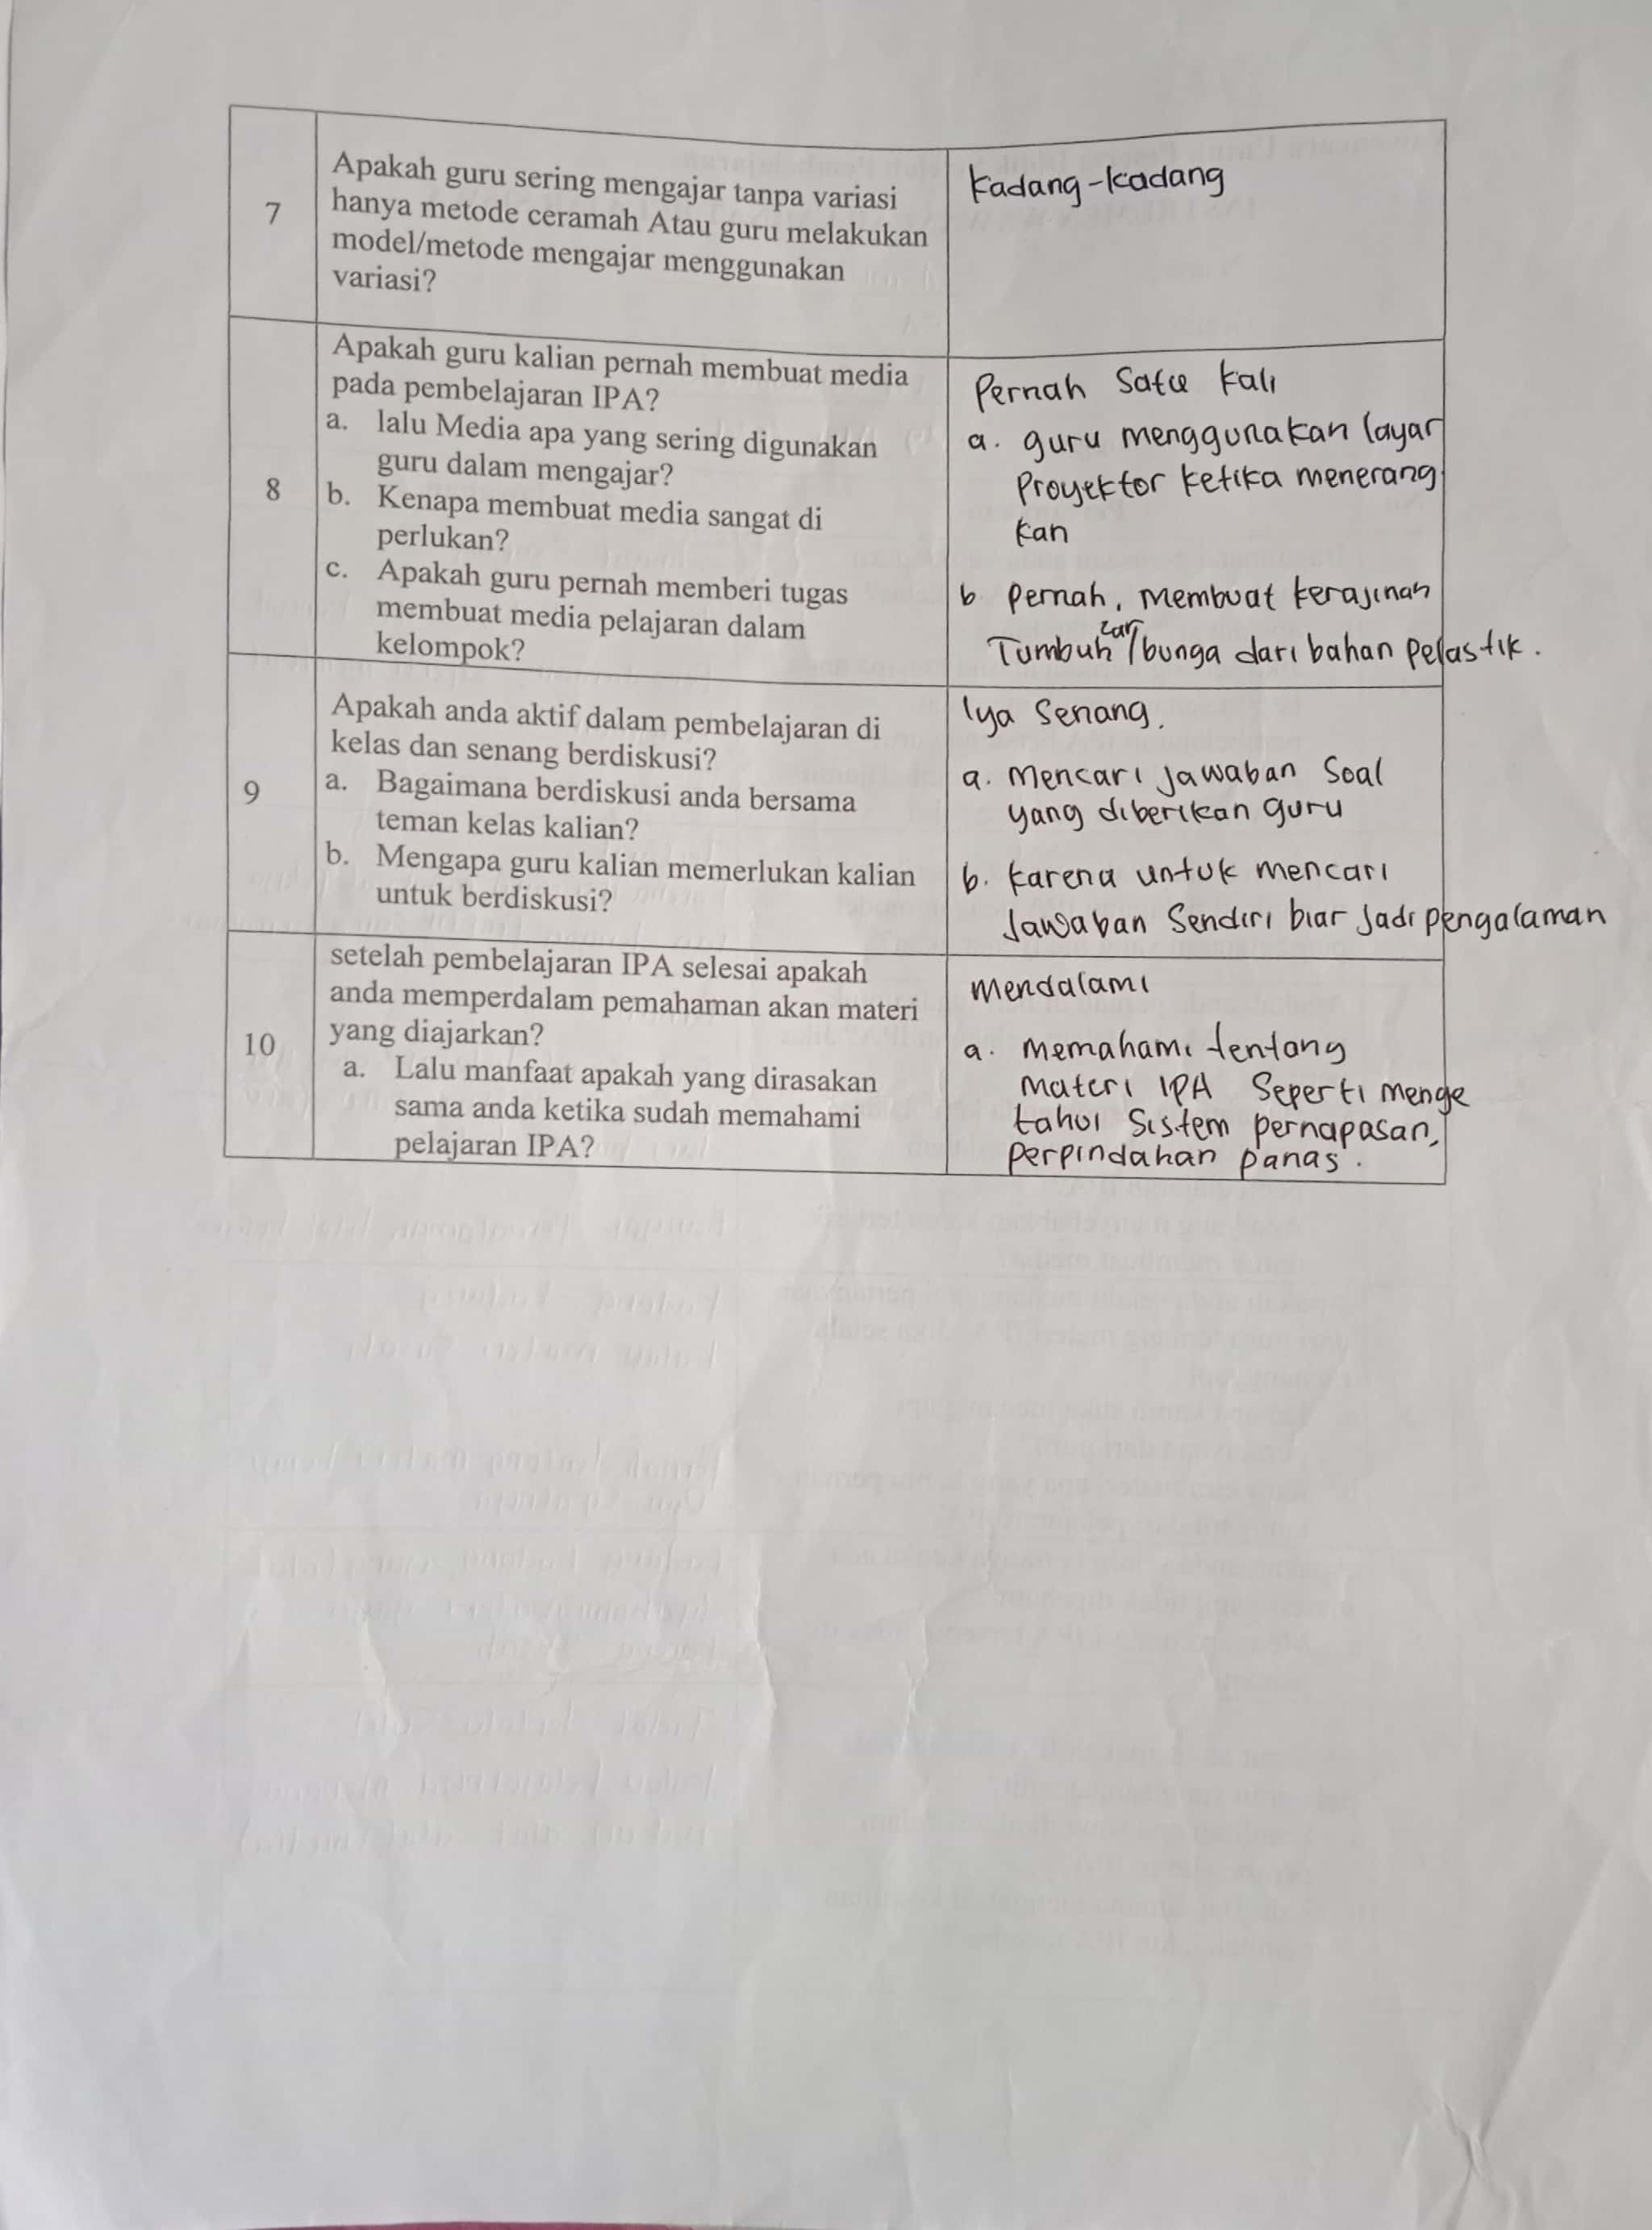 7
Apakah guru sering mengajar tanpa variasi
hanya metode ceramah Atau guru melakukan
model/metode mengajar menggunakan
variasi?
Kadang-kadang
8
Apakah guru kalian pernah membuat media
pada pembelajaran IPA?
a. lalu Media apa yang sering digunakan
guru dalam mengajar?
b. Kenapa membuat media sangat di
perlukan?
c. Apakah guru pernah memberi tugas
membuat media pelajaran dalam
kelompok?
Pernah Satu kali
a. guru menggunakan layar
Proyektor ketika menerang
kan
b. Pernah, membuat kerajinan
Tumbuhan/bunga dari bahan pelastik.
9
Apakah anda aktif dalam pembelajaran di
kelas dan senang berdiskusi?
a. Bagaimana berdiskusi anda bersama
teman kelas kalian?
b. Mengapa guru kalian memerlukan kalian
untuk berdiskusi?
Iya Senang.
a. Mencari jawaban Soal
yang diberikan guru
b. karena untuk mencari
Jawaban Sendiri biar Jadi pengalaman
10
setelah pembelajaran IPA selesai apakah
anda memperdalam pemahaman akan materi
yang diajarkan?
a. Lalu manfaat apakah yang dirasakan
sama anda ketika sudah memahami
pelajaran IPA?
Mendalami
a. Memahami tentang
Materi IPA Seperti menge
tahui Sistem pernapasan,
perpindahan panas.